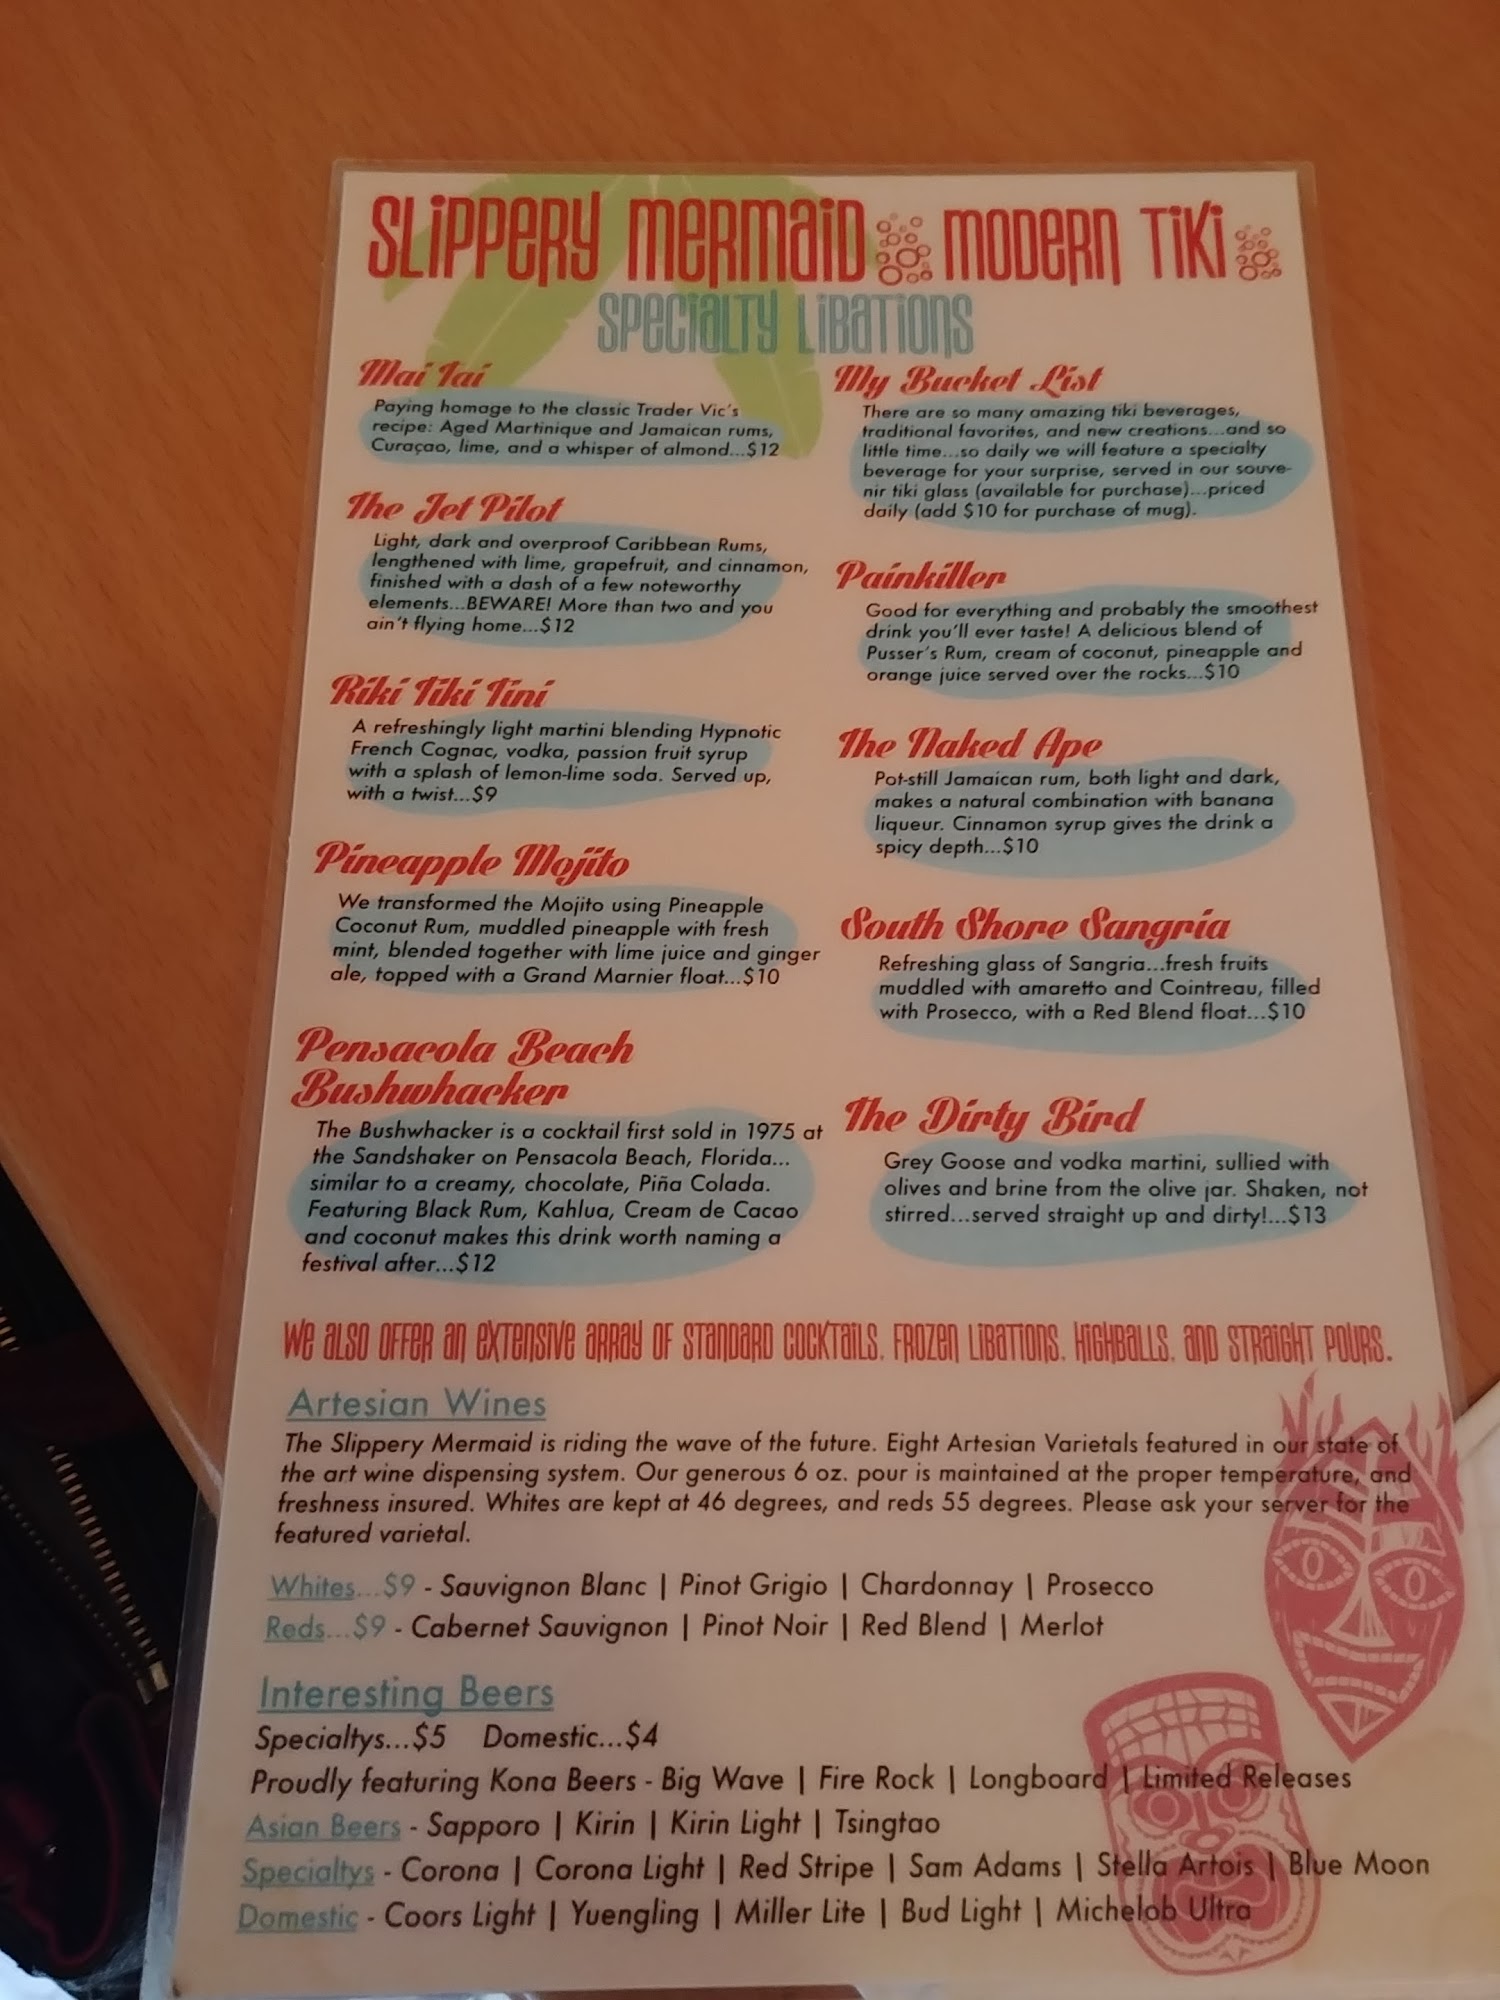 SLIPPERY MERMAID MODERN TIKI
SPECIALTY LIBATIONS
Mai Tai
Paying homage to the classic Trader Vic's
recipe: Aged Martinique and Jamaican rums,
Curaçao, lime, and a whisper of almond...$12
The Jet Pilot
Light, dark and overproof Caribbean Rums,
lengthened with lime, grapefruit, and cinnamon,
finished with a dash of a few noteworthy
elements...BEWARE! More than two and you
ain't flying home...$12
Riki Tiki Tini
A refreshingly light martini blending Hypnotic
French Cognac, vodka, passion fruit syrup
with a splash of lemon-lime soda. Served up,
with a twist...$9
Pineapple Mojito
We transformed the Mojito using Pineapple
Coconut Rum, muddled pineapple with fresh
mint, blended together with lime juice and ginger
ale, topped with a Grand Marnier float...$10
Pensacola Beach
Bushwhacker
The Bushwhacker is a cocktail first sold in 1975 at
the Sandshaker on Pensacola Beach, Florida...
similar to a creamy, chocolate, Piña Colada.
Featuring Black Rum, Kahlua, Cream de Cacao
and coconut makes this drink worth naming a
festival after...$12
My Bucket List
There are so many amazing tiki beverages,
traditional favorites, and new creations...and so
little time...so daily we will feature a specialty
beverage for your surprise, served in our souve-
nir tiki glass (available for purchase)...priced
daily (add $10 for purchase of mug).
Painkiller
Good for everything and probably the smoothest
drink you'll ever taste! A delicious blend of
Pusser's Rum, cream of coconut, pineapple and
orange juice served over the rocks...$10
The Naked Ape
Pot-still Jamaican rum, both light and dark,
makes a natural combination with banana
liqueur. Cinnamon syrup gives the drink a
spicy depth...$10
South Shore Sangria
Refreshing glass of Sangria...fresh fruits
muddled with amaretto and Cointreau, filled
with Prosecco, with a Red Blend float...$10
The Dirty Bird
Grey Goose and vodka martini, sullied with
olives and brine from the olive jar. Shaken, not
stirred...served straight up and dirty!...$13
WE ALSO OFFER AN EXTENSIVE ARRAY OF STANDARD COCKTAILS, FROZEN LIBATIONS, HIGHBALLS, AND STRAIGHT POURS.
Artesian Wines
The Slippery Mermaid is riding the wave of the future. Eight Artesian Varietals featured in our state of
the art wine dispensing system. Our generous 6 oz. pour is maintained at the proper temperature, and
freshness insured. Whites are kept at 46 degrees, and reds 55 degrees. Please ask your server for the
featured varietal.
Whites...$9 - Sauvignon Blanc | Pinot Grigio | Chardonnay | Prosecco
Reds...$9 - Cabernet Sauvignon | Pinot Noir | Red Blend | Merlot
Interesting Beers
Specialtys...$5 Domestic...$4
Proudly featuring Kona Beers - Big Wave | Fire Rock | Longboard | Limited Releases
Asian Beers - Sapporo | Kirin | Kirin Light | Tsingtao
Specialtys - Corona | Corona Light | Red Stripe | Sam Adams | Stella Artois | Blue Moon
Domestic - Coors Light | Yuengling | Miller Lite | Bud Light | Michelob Ultra